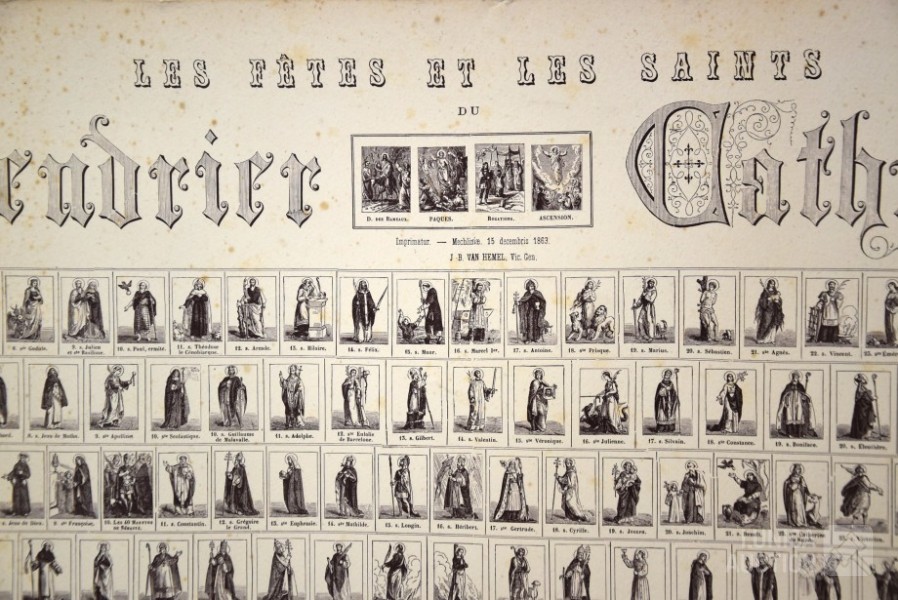 LES FÊTES ET LES SAINTS
DU
endrier Cath
D. DES RAMEAUX. PAQUES. ROGATIONS. ASCENSION.
Imprimatur. — Mechliniæ. 15 decembris 1863.
J. B. VAN HEMEL, Vic. Gen.
8. ste Gudule. 9. s. Julien et ste Basilisse. 10. s. Paul, ermite. 11. s. Théodose le Cénobiarque. 12. s. Arcade. 13. s. Hilaire. 14. s. Félix. 15. s. Maur. 16. s. Marcel Ier. 17. s. Antoine. 18. ste Prisque. 19. s. Marius. 20. s. Sébastien. 21. ste Agnès. 22. s. Vincent.
8. s. Jean de Matha. 9. ste Apolline 10. ste Scolastique. 10. s. Guillaume de Malavalle. 11. s. Adolphe. 12. ste Eulalie de Barcelone. 13. s. Gilbert. 14. s. Valentin. 15. ste Véronique. 16. ste Julienne. 17. s. Silvain. 18. ste Constance. 19. s. Boniface. 20. s. Eleuthère.
s. Jean de Dieu. 9. ste Françoise. 10. Les 40 Martyrs de Sébaste. 11. s. Constantin. 12. s. Grégoire le Grand. 13. ste Euphrasie. 14. ste Mathilde. 15. s. Longin. 16. s. Héribert. 17. ste Gertrude. 18. s. Cyrille. 19. s. Joseph. 20. s. Joachim. 21. s. Benoît. 22. ste Catherine